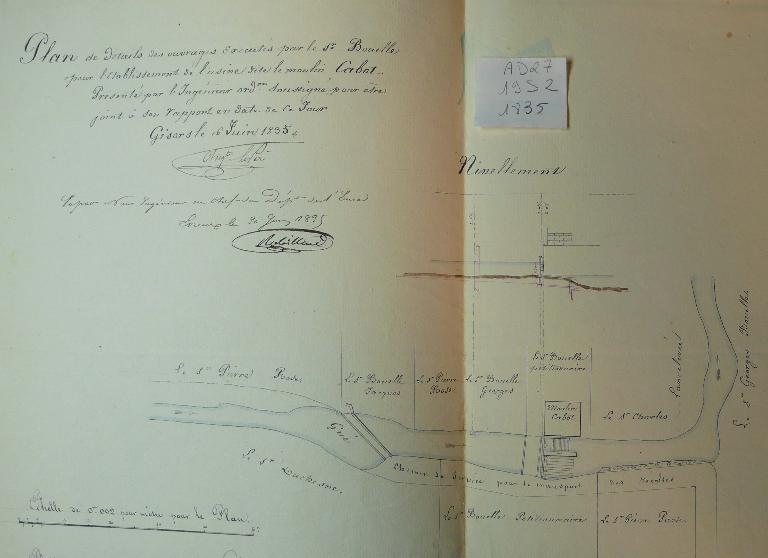 Plan de détails des ouvrages Executés par le Sr. Bouelle
pour l'établissement de l'usine dite le moulin Cabot.
Presenté par l'Ingénieur ordre Soussigné pour être
joint à son rapport en date de Ce Jour
Gisors le 6 Juin 1835
AD27
19S2
1835
Nivellement
Vu par Nous Ingénieur en Chef du Dépt de l'Eure
Evreux le 30 Juin 1835
Robillard
Le Sr Pierre
Le Sr Bouelle
Jacques
Le Sr Pierre
Le Sr Bouelle
Georges
Le Sr Bouelle
petitionnaire
Moulin
Cabot
Le Sr Charles
Le Sr Georges
Gué
Le Sr Duchesne.
Chemin de Service pour le transport des Récoltes
Echelle de 0,002 pour mètre pour le Plan.
Le Sr Bouelles Petitionnaire
Le Sr Pierre